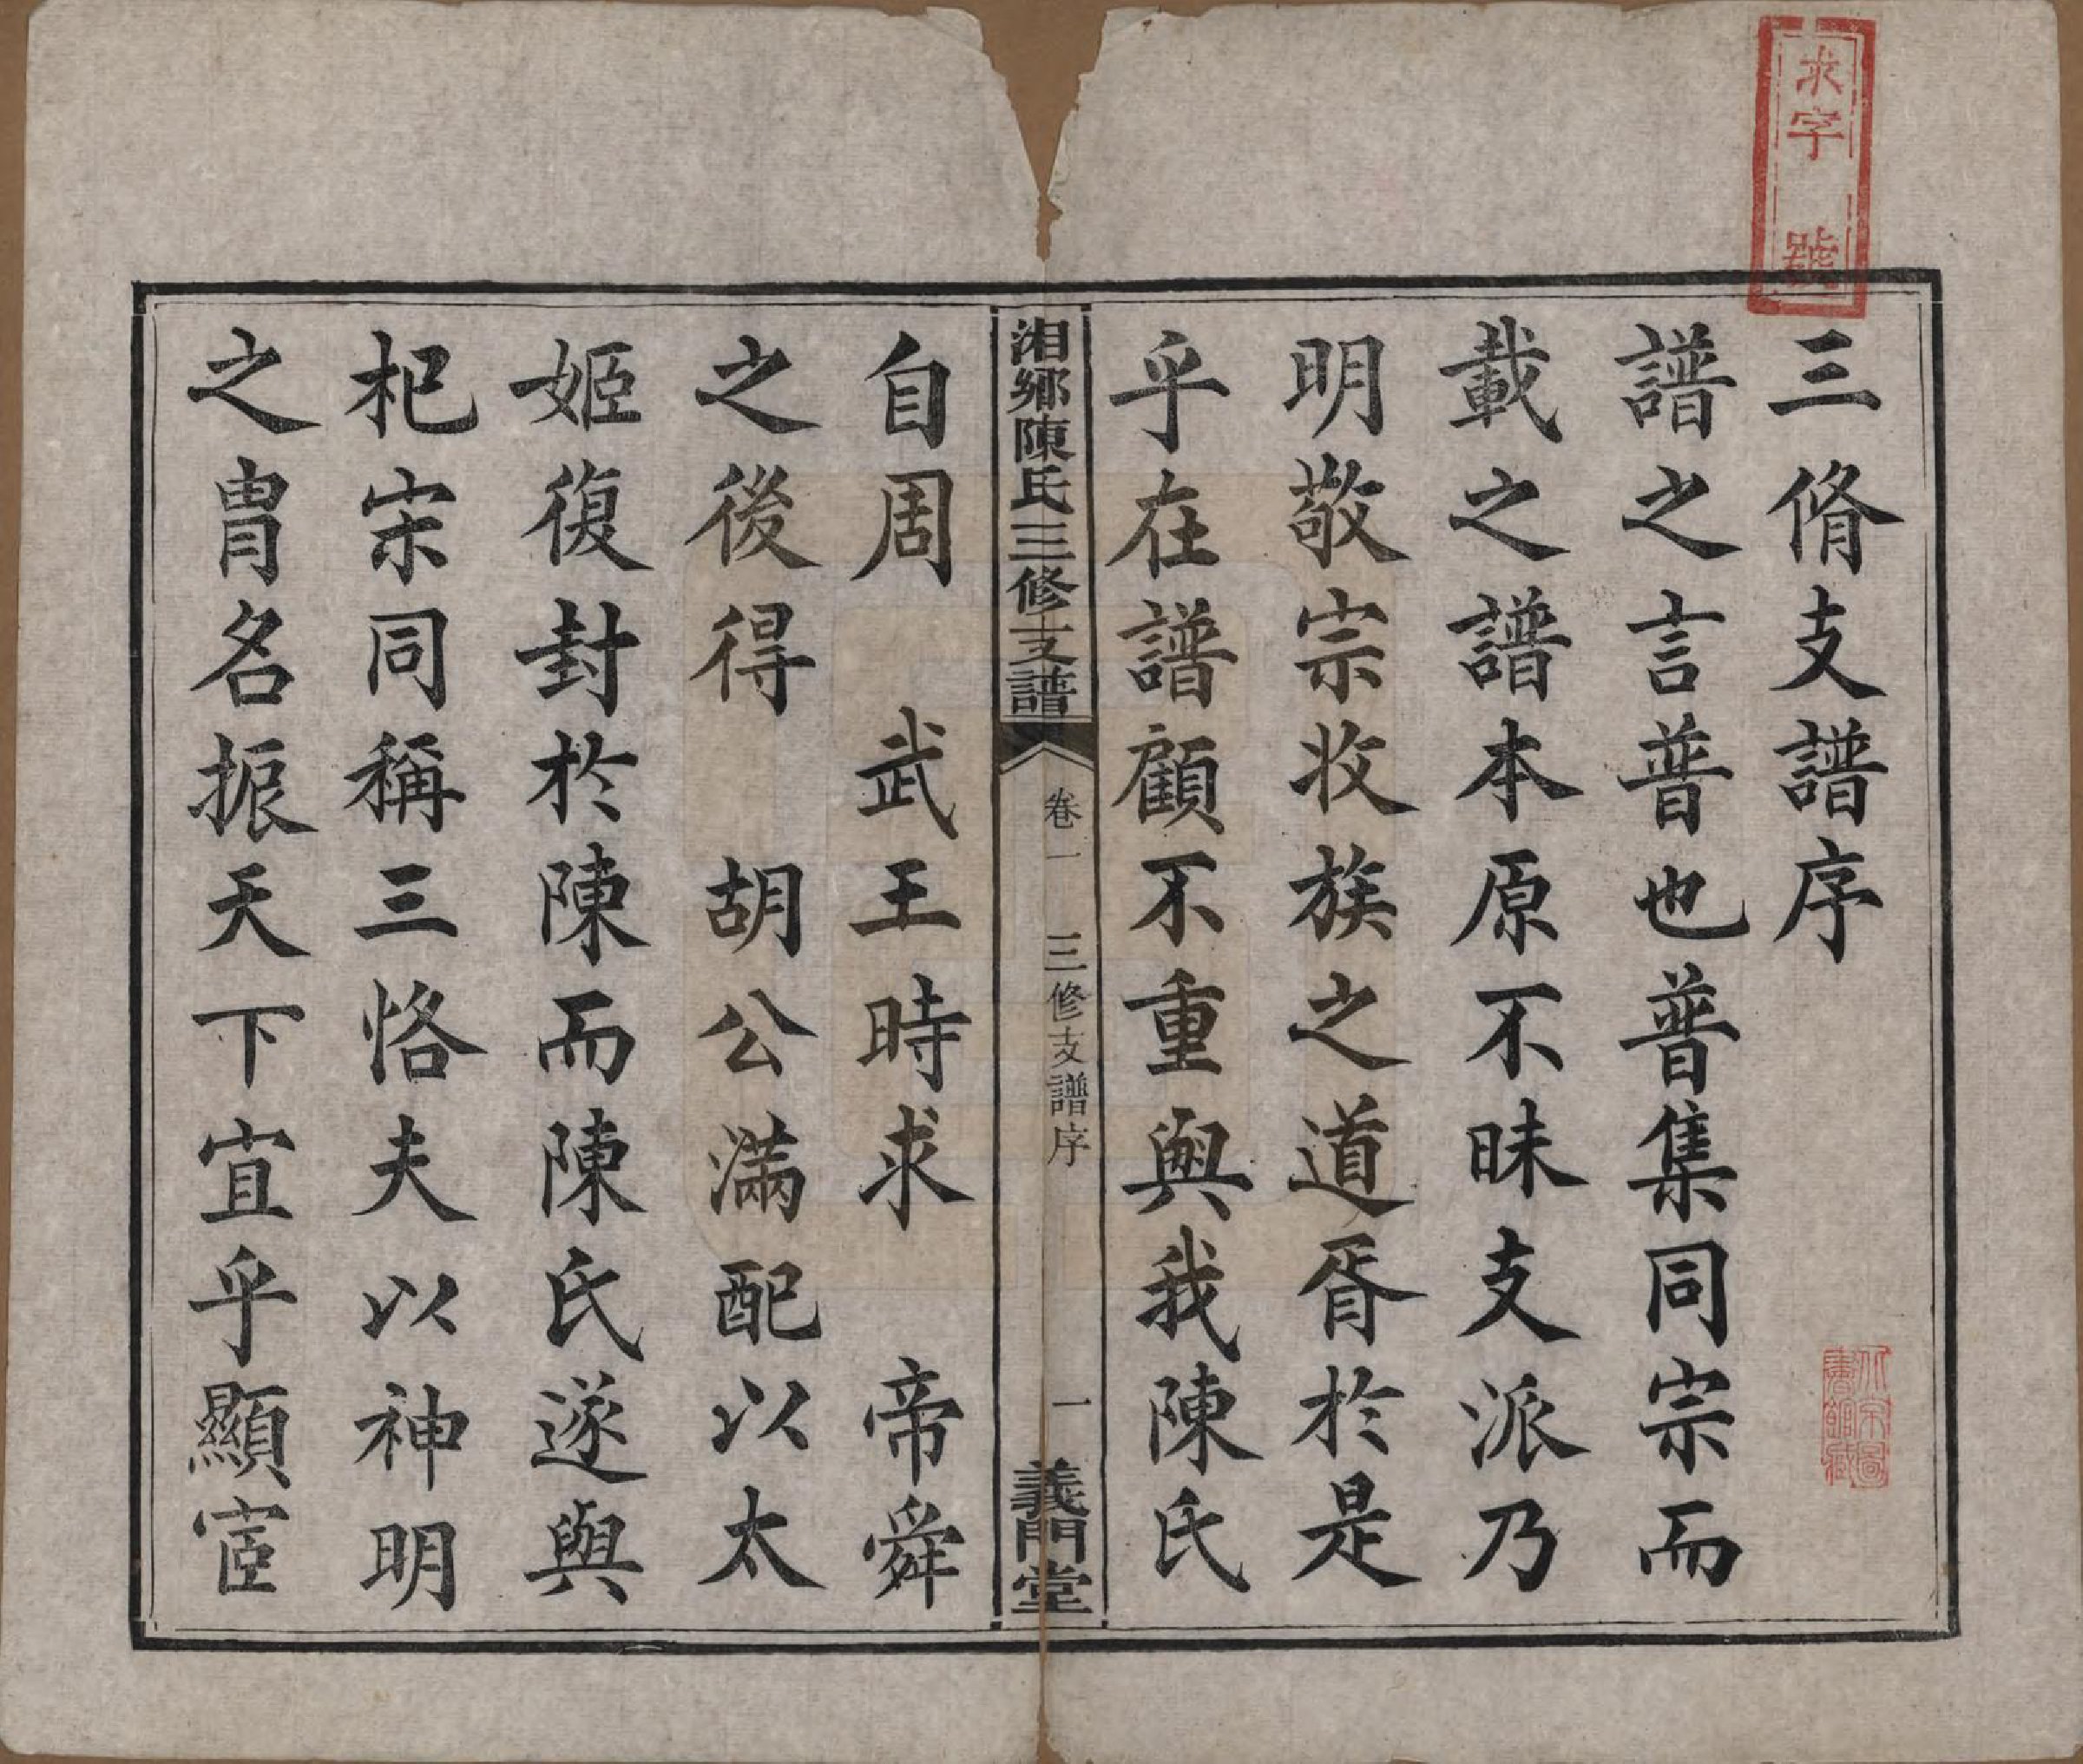 求字
號
三脩支譜序
譜之言普也普集同宗而
載之譜本原不昧支派乃
明敬宗收族之道胥於是
乎在譜顧不重與我陳氏
湘鄉陳氏三修支譜
卷一
三修支譜序
一
義門堂
自周 武王時求 帝舜
之後得 胡公滿配以太
姬復封於陳而陳氏遂與
杞宋同稱三恪夫以神明
之胄名振天下宜乎顯宦